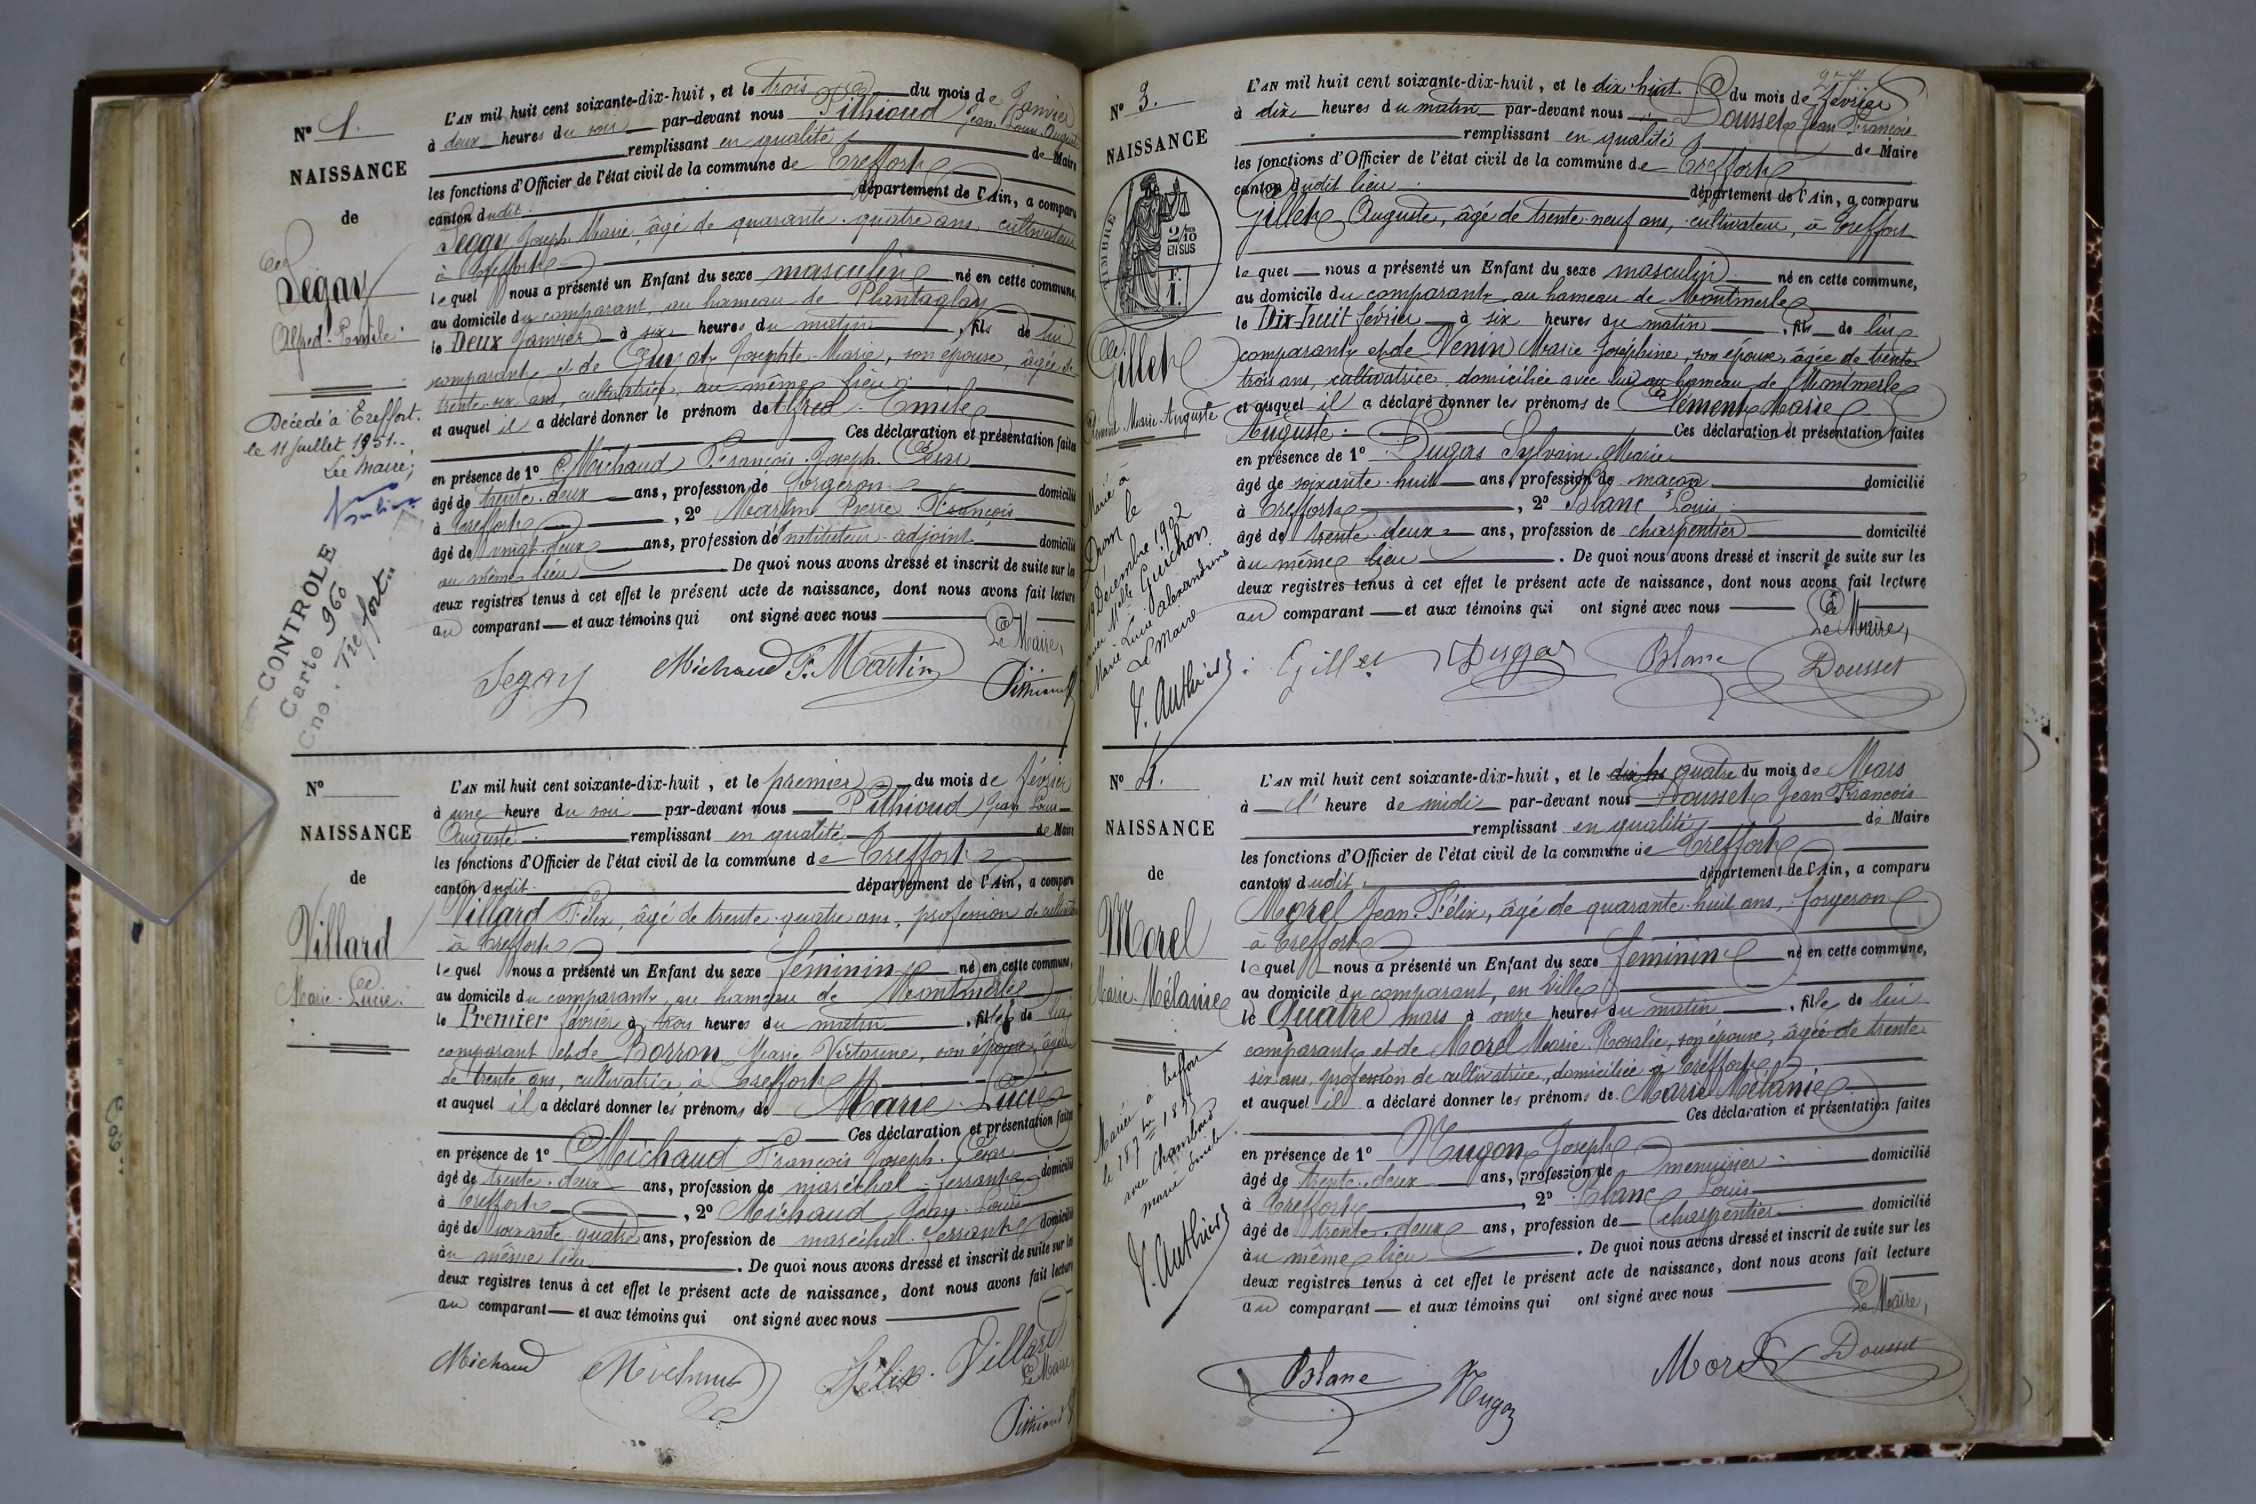 N° 1.
NAISSANCE
de
Segay
Alfred-Emile
Décédé à Treffort.
le 11 Juillet 1951..
Le Maire,
CONTRÔLE
Carte 960
Cne. Treffort..
L'AN mil huit cent soixante-dix-huit, et le trois du mois de Janvier
à deux heures du soir par-devant nous Pithioud Jean Louis Auguste
remplissant en qualité de Maire
les fonctions d'Officier de l'état civil de la commune de Treffort
canton dudit département de l'Ain, a comparu
Segay Joseph Marie, âgé de quarante-quatre ans, cultivateur
à Treffort
lequel nous a présenté un Enfant du sexe masculin né en cette commune,
au domicile du comparant, au hameau de Plantaglay
le Deux Janvier à six heures du matin, fils de lui
comparant et de Guyot Josephte-Marie, son épouse, âgée de
trente-six ans, cultivatrice, au même lieu
et auquel il a déclaré donner le prénom de Alfred-Emile
Ces déclaration et présentation faites
en présence de 1° Michaud François Joseph César
âgé de trente-deux ans, profession de forgeron domicilié
à Treffort, 2° Martin Pierre François
âgé de vingt-deux ans, profession d'Instituteur adjoint domicilié
au même lieu. De quoi nous avons dressé et inscrit de suite sur les
deux registres tenus à cet effet le présent acte de naissance, dont nous avons fait lecture
au comparant et aux témoins qui ont signé avec nous
Le Maire,
Segay Michaud F. Martin Pithioud
N°
NAISSANCE
de
Villard
Marie-Lucie.
L'AN mil huit cent soixante-dix-huit, et le premier du mois de février
à une heure du soir par-devant nous Pithioud Jean Louis
Auguste remplissant en qualité de Maire
les fonctions d'Officier de l'état civil de la commune de Treffort
canton dudit département de l'Ain, a comparu
Villard Félix, âgé de trente-quatre ans, profession de cultivateur
à Treffort
lequel nous a présenté un Enfant du sexe féminin né en cette commune,
au domicile du comparant, au hameau de Montmerle
le Premier février à trois heures du matin, fille de lui
comparant et de Borron Marie Victorine, son épouse, âgée
de trente ans, cultivatrice à Treffort
et auquel il a déclaré donner les prénoms de Marie-Lucie
Ces déclaration et présentation faites
en présence de 1° Michaud François Joseph César
âgé de trente-deux ans, profession de maréchal-ferrant domicilié
à Treffort, 2° Michaud Jean-Louis
âgé de soixante quatre ans, profession de maréchal-ferrant domicilié
au même lieu. De quoi nous avons dressé et inscrit de suite sur les
deux registres tenus à cet effet le présent acte de naissance, dont nous avons fait lecture
au comparant et aux témoins qui ont signé avec nous
Michaud Michaud Félix Villard
Le Maire,
Pithioud
N° 3.
NAISSANCE
TIMBRE
2/10 EN SUS
F. 1.
Gillet
Clément-Marie-Auguste
Marié à
Drom le
19 Décembre 1902
avec Melle Guichon
Marie Lucie Alexandrine
Le Maire
V. Authier
L'AN mil huit cent soixante-dix-huit, et le dix huit du mois de février
à dix heures du matin par-devant nous Dousset Jean François
remplissant en qualité de Maire
les fonctions d'Officier de l'état civil de la commune de Treffort
canton dudit lieu département de l'Ain, a comparu
Gillet Auguste, âgé de trente-neuf ans, cultivateur, à Treffort
lequel nous a présenté un Enfant du sexe masculin né en cette commune,
au domicile du comparant au hameau de Montmerle
le Dix-huit février à six heures du matin, fils de lui
comparant et de Venin Marie Joséphine, son épouse, âgée de trente
trois ans, cultivatrice, domiciliée avec lui au hameau de Montmerle
et auquel il a déclaré donner les prénoms de Clément Marie
Auguste. Ces déclaration et présentation faites
en présence de 1° Dugas Sylvain Marie
âgé de soixante-huit ans, profession de maçon domicilié
à Treffort, 2° Blanc Louis
âgé de trente-deux ans, profession de charpentier domicilié
au même lieu. De quoi nous avons dressé et inscrit de suite sur les
deux registres tenus à cet effet le présent acte de naissance, dont nous avons fait lecture
au comparant et aux témoins qui ont signé avec nous
Le Maire,
Gillet Dugas Blanc Dousset
N° 4.
NAISSANCE
de
Morel
Marie-Mélanie
Mariée à Treffort
avec Chambard
Marie Emile
V. Authier
L'AN mil huit cent soixante-dix-huit, et le dix hu quatre du mois de Mars
à l'heure de midi par-devant nous Dousset Jean François
remplissant en qualité de Maire
les fonctions d'Officier de l'état civil de la commune de Treffort
canton dudit département de l'Ain, a comparu
Morel Jean-Félix, âgé de quarante-huit ans, forgeron
à Treffort
lequel nous a présenté un Enfant du sexe féminin né en cette commune,
au domicile du comparant, en ville
le Quatre mars à onze heures du matin, fille de lui
comparant et de Morel Marie Rosalie, son épouse, âgée de trente
six ans, profession de cultivatrice, domiciliée à Treffort
et auquel il a déclaré donner les prénoms de Marie Mélanie
Ces déclaration et présentation faites
en présence de 1° Nugon Joseph
âgé de trente-deux ans, profession de menuisier domicilié
à Treffort, 2° Blanc Louis
âgé de trente-deux ans, profession de charpentier domicilié
au même lieu. De quoi nous avons dressé et inscrit de suite sur les
deux registres tenus à cet effet le présent acte de naissance, dont nous avons fait lecture
au comparant et aux témoins qui ont signé avec nous
Le Maire,
Blanc Nugon Morel Dousset